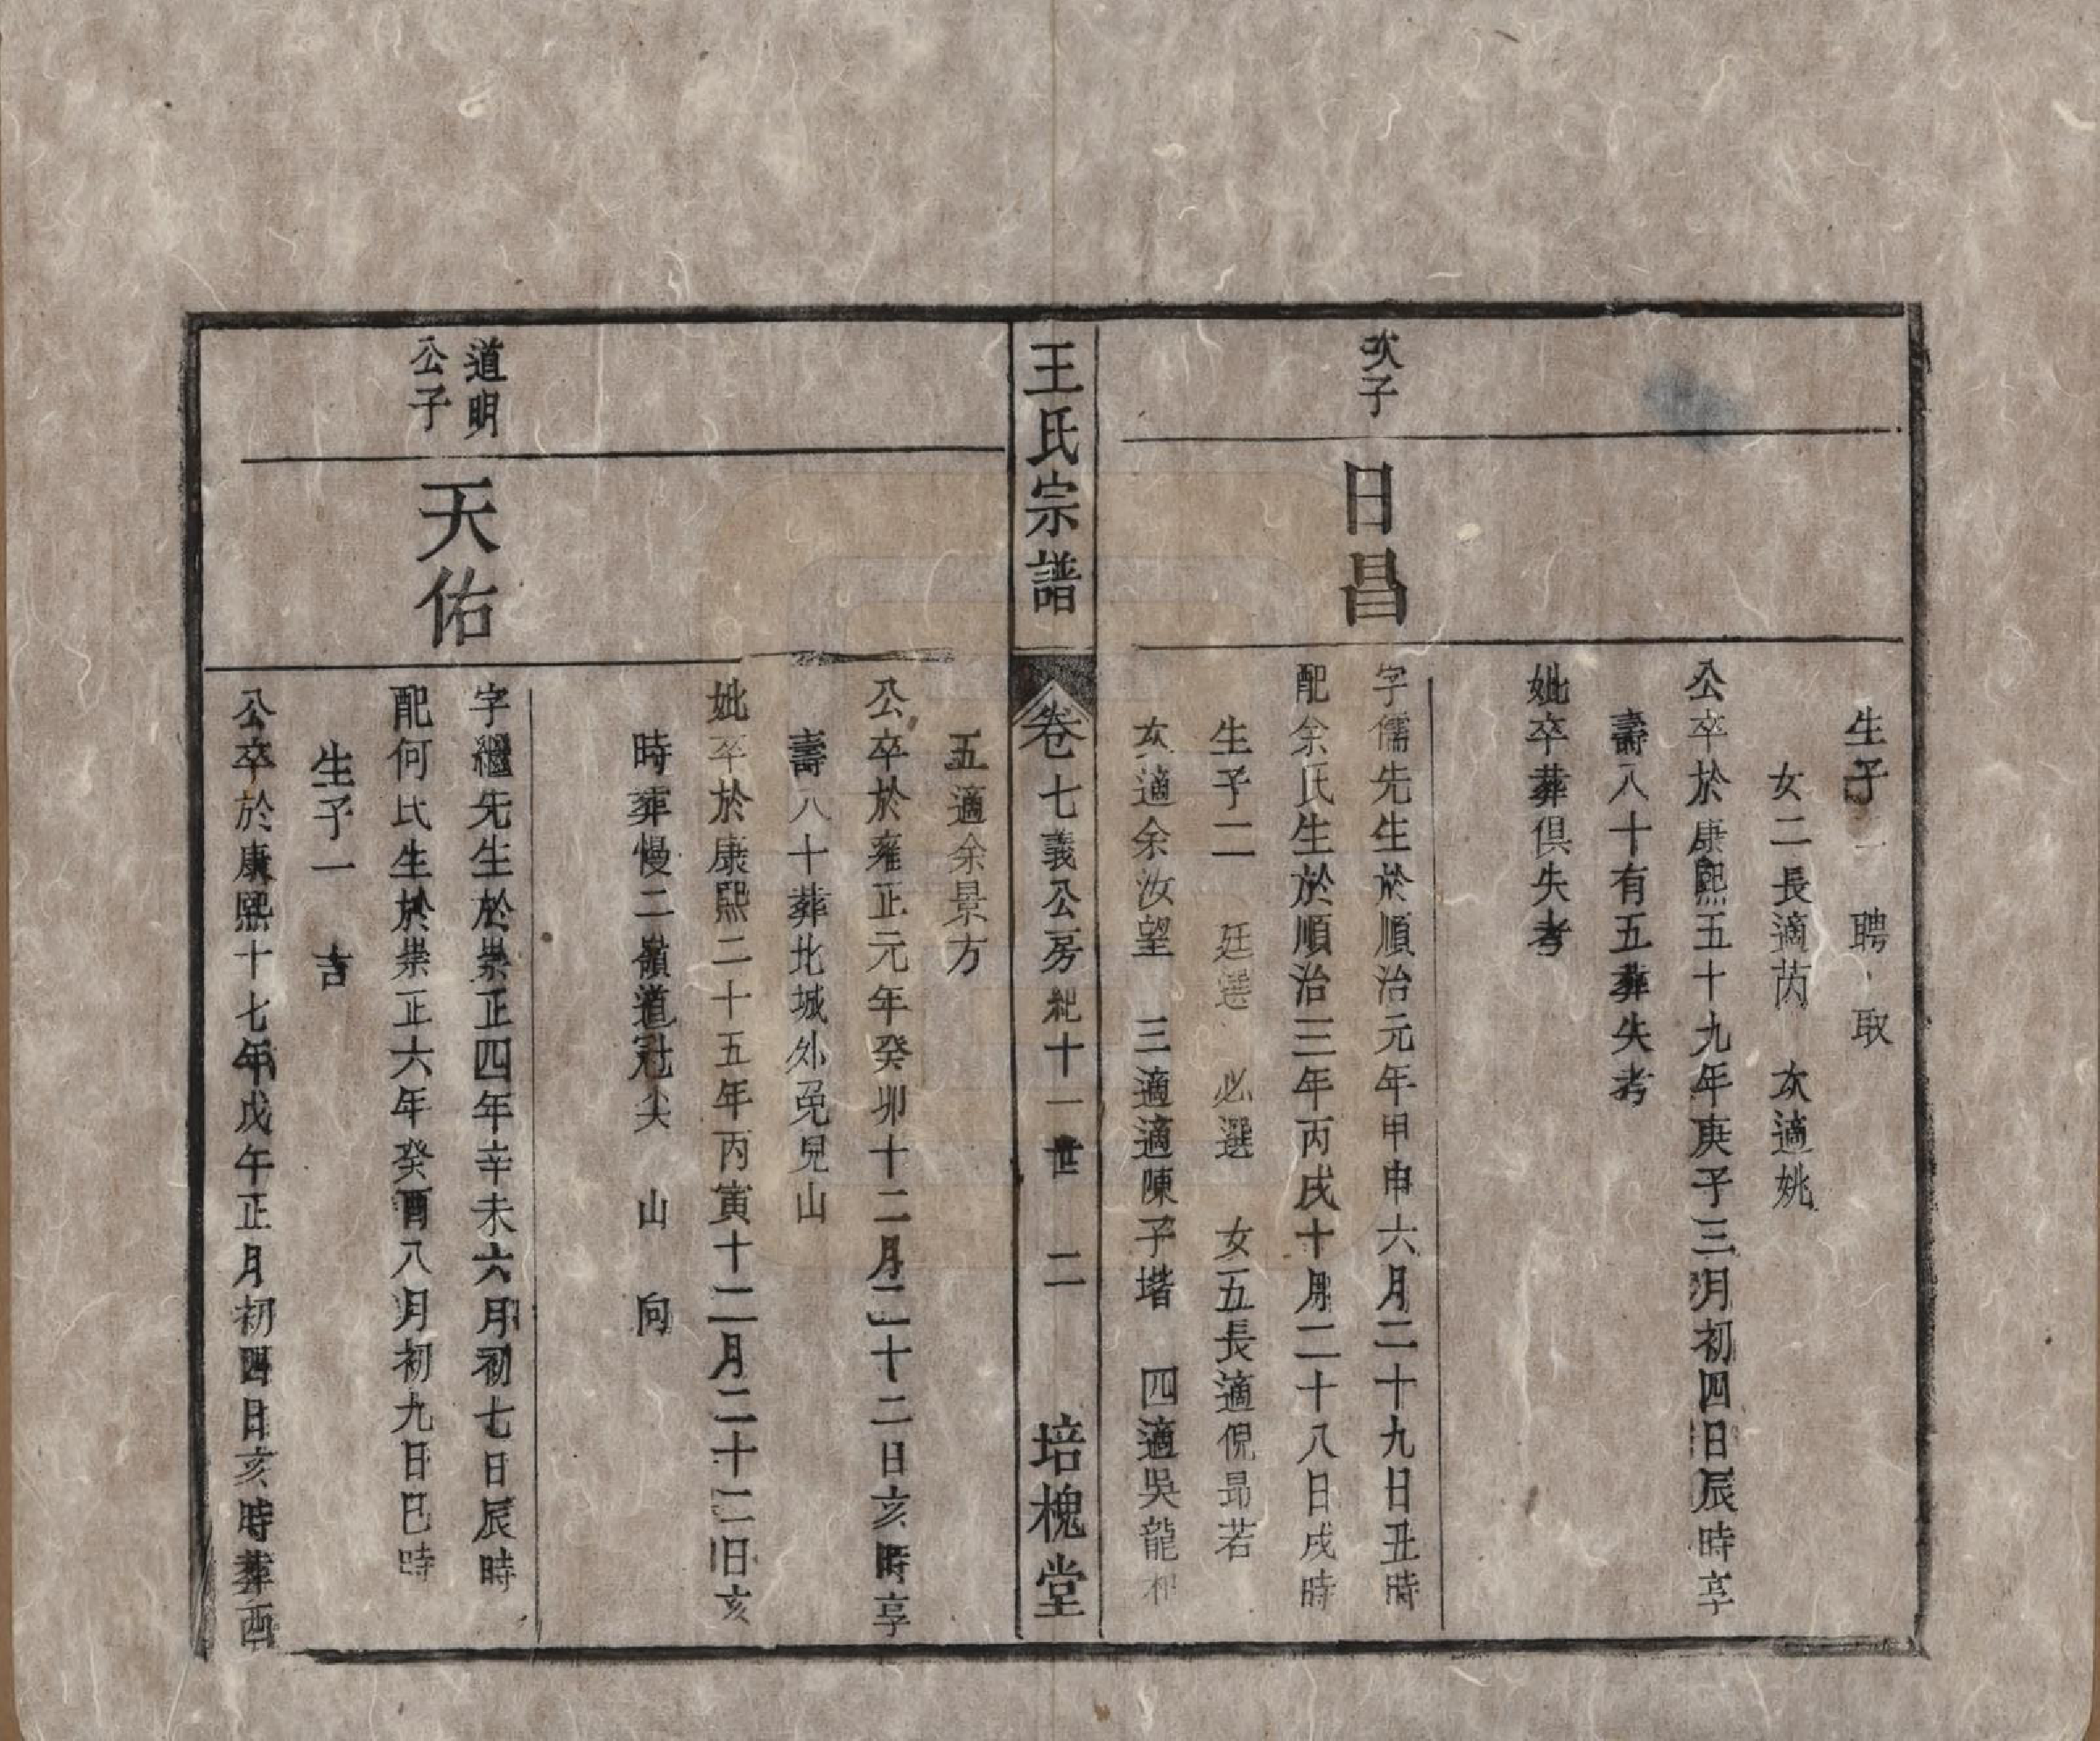 生子一 聘 取
女二長適芮 次適姚
公卒於康熙五十九年庚子三月初四日辰時享
壽八十有五葬失考
妣卒葬俱失考
次子
日昌
字儒先生於順治元年甲申六月二十九日丑時
配余氏生於順治三年丙戌十月二十八日戌時
生子二 廷選 必選 女五長適倪昻若
次適余汝望 三適適陳子堦 四適吳龍和
王氏宗譜
卷七義公房紀十一世 二
培槐堂
五適余景方
公卒於雍正元年癸卯十二月二十二日亥時享
壽八十葬北城外兎兒山
妣卒於康熙二十五年丙寅十二月二十二日亥
時葬慢二嶺道冠尖 山 向
道明
公子
天佑
字繼先生於崇正四年辛未六月初七日辰時
配何氏生於崇正六年癸酉八月初九日巳時
生子一 吉
公卒於康熙十七年戊午正月初四日亥時葬西